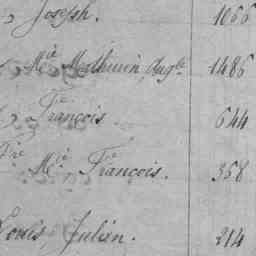 , Joseph. 1066
, Mie Mathurin, Augte 1486
, François 644
Fre Mie François. 358
Louis, Julien. 214